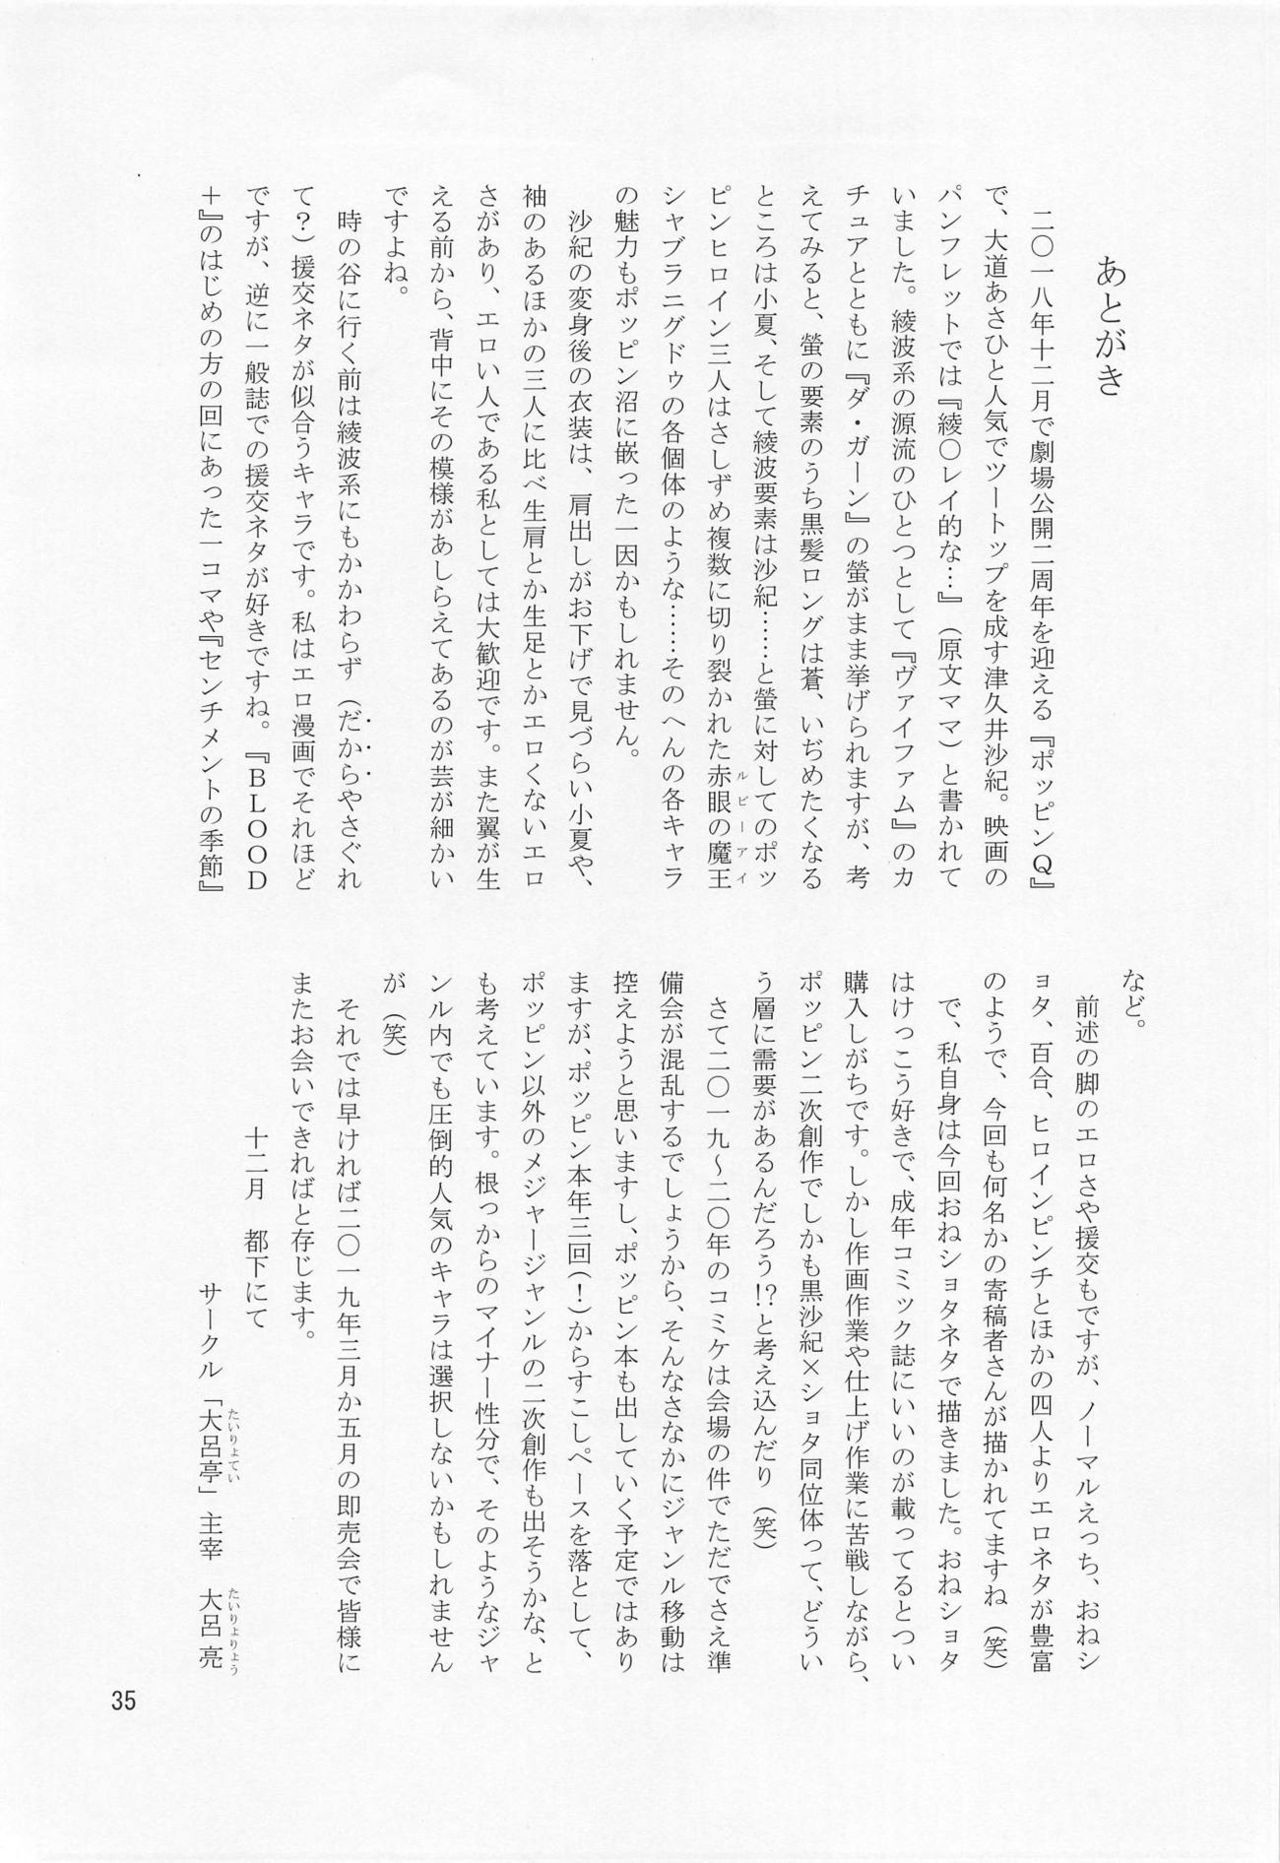 あとがき
二〇一八年十二月で劇場公開二周年を迎える『ポッピンＱ』
で、大道あさひと人気でツートップを成す津久井沙紀。映画の
パンフレットでは『綾〇レイ的な…』（原文ママ）と書かれて
いました。綾波系の源流のひとつとして『ヴァイファム』のカ
チュアとともに『ダ・ガーン』の螢がまま挙げられますが、考
えてみると、螢の要素のうち黒髪ロングは蒼、いぢめたくなる
ところは小夏、そして綾波要素は沙紀……と螢に対してのポッ
ピンヒロイン三人はさしずめ複数に切り裂かれた赤眼の魔王
ルビーアイ
シャブラニグドゥの各個体のような……そのへんの各キャラ
の魅力もポッピン沼に嵌った一因かもしれません。
沙紀の変身後の衣装は、肩出しがお下げで見づらい小夏や、
袖のあるほかの三人に比べ生肩とか生足とかエロくないエロ
さがあり、エロい人である私としては大歓迎です。また翼が生
える前から、背中にその模様があしらえてあるのが芸が細かい
ですよね。
時の谷に行く前は綾波系にもかかわらず（だからやさぐれ
て？）援交ネタが似合うキャラです。私はエロ漫画でそれほど
ですが、逆に一般誌での援交ネタが好きですね。『ＢＬＯＯＤ
＋』のはじめの方の回にあった一コマや『センチメントの季節』
など。
前述の脚のエロさや援交もですが、ノーマルえっち、おねシ
ョタ、百合、ヒロインピンチとほかの四人よりエロネタが豊富
のようで、今回も何名かの寄稿者さんが描かれてますね（笑）
で、私自身は今回おねショタネタで描きました。おねショタ
はけっこう好きで、成年コミック誌にいいのが載ってるとつい
購入しがちです。しかし作画作業や仕上げ作業に苦戦しながら、
ポッピン二次創作でしかも黒沙紀×ショタ同位体って、どうい
う層に需要があるんだろう!?と考え込んだり（笑）
さて二〇一九～二〇年のコミケは会場の件でただでさえ準
備会が混乱するでしょうから、そんなさなかにジャンル移動は
控えようと思いますし、ポッピン本も出していく予定ではあり
ますが、ポッピン本年三回（！）からすこしペースを落として、
ポッピン以外のメジャージャンルの二次創作も出そうかな、と
も考えています。根っからのマイナー性分で、そのようなジャ
ンル内でも圧倒的人気のキャラは選択しないかもしれません
が（笑）
それでは早ければ二〇一九年三月か五月の即売会で皆様に
またお会いできればと存じます。
十二月　都下にて
サークル「大呂亭」主宰　大呂亮
たいりょてい　たいりょりょう
35